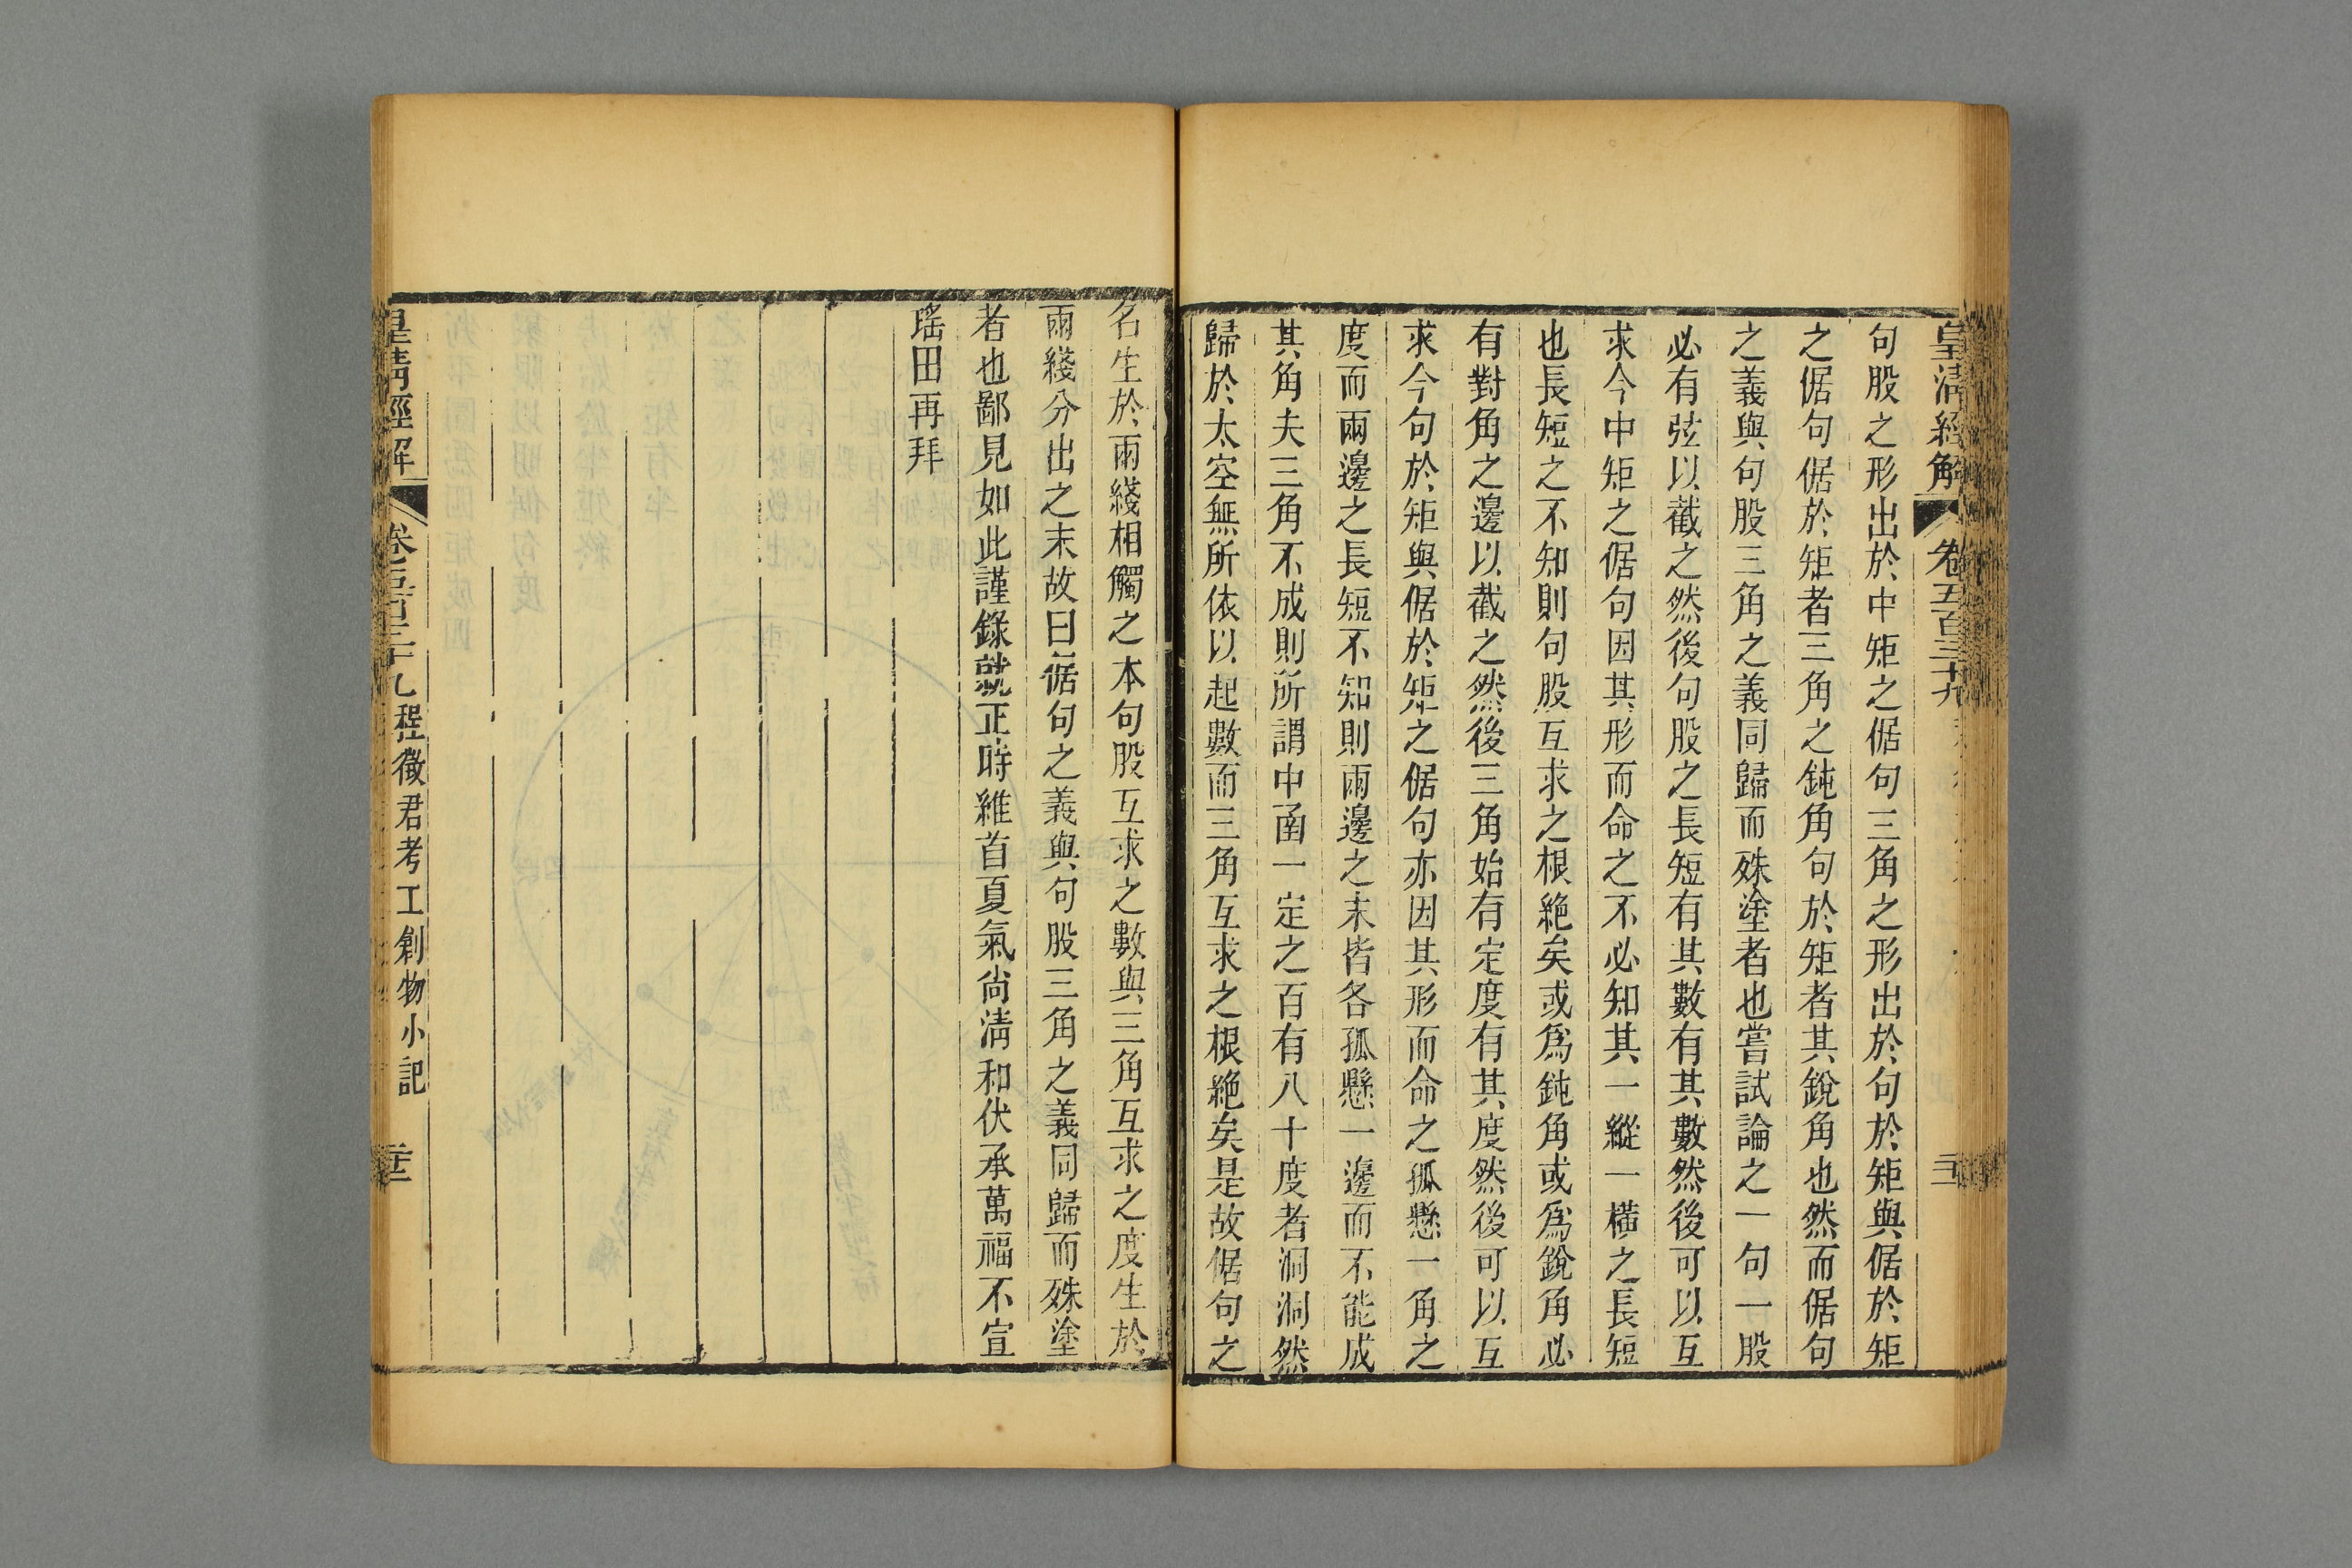 皇清經解 卷五百三十九
句股之形出於中矩之倨句三角之形出於句於矩與倨於矩
之倨句倨於矩者三角之鈍角句於矩者其銳角也然而倨句
之義與句股三角之義同歸而殊塗者也嘗試論之一句一股
必有弦以截之然後句股之長短有其數有其數然後可以互
求今中矩之倨句因其形而命之不必知其一縱一橫之長短
也長短之不知則句股互求之根絕矣或爲鈍角或爲銳角必
有對角之邊以截之然後三角始有定度有其度然後可以互
求今句於矩與倨於矩之倨句亦因其形而命之孤懸一角之
度而兩邊之長短不知則兩邊之末皆各孤懸一邊而不能成
其角夫三角不成則所謂中函一定之百有八十度者洞洞然
歸於太空無所依以起數而三角互求之根絕矣是故倨句之
名生於兩綫相觸之本句股互求之數與三角互求之度生於
兩綫分出之末故曰倨句之義與句股三角之義同歸而殊塗
者也鄙見如此謹錄就正時維首夏氣尚清和伏承萬福不宣
瑤田再拜
皇清經解 卷五百三十九 程徵君考工創物小記